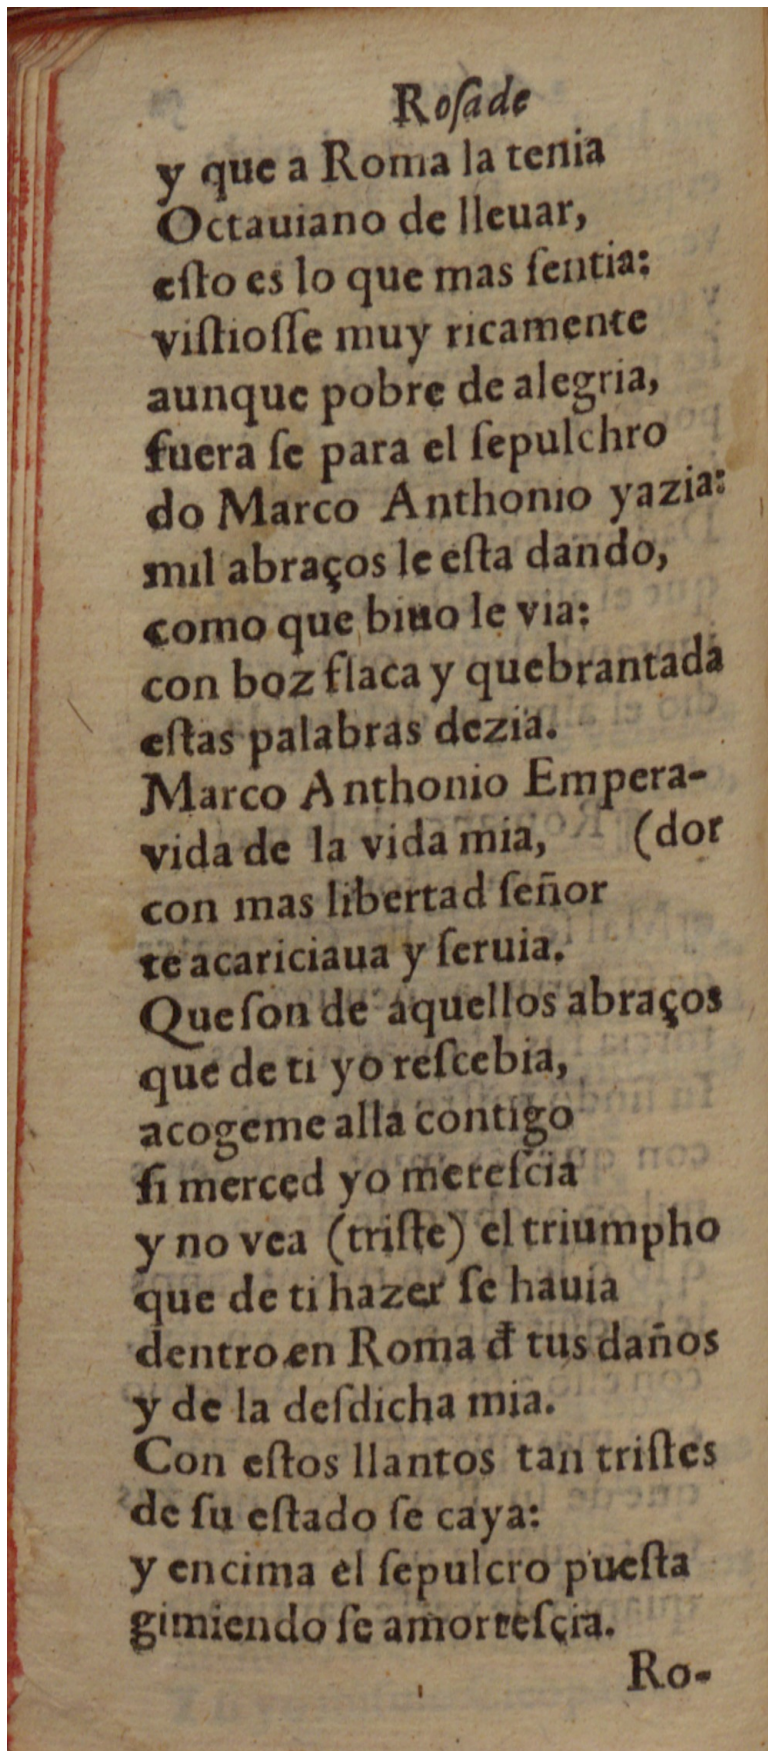 Roſa de
y que a Roma la tenia
Octauiano de lleuar,
eſto es lo que mas ſentia:
viſtioſſe muy ricamente
aunque pobre de alegria,
fuera ſe para el ſepulchro
do Marco Anthonio yazia:
mil abraços le eſta dando,
como que biuo le via:
con boz flaca y quebrantada
eſtas palabras dezia.
Marco Anthonio Empera-
vida de la vida mia, (dor
con mas libertad ſeñor
te acariciaua y ſeruia.
Que ſon de aquellos abraços
que de ti yo reſcebia,
acogeme alla contigo
ſi merced yo mereſcia
y no vea (triſte) el triumpho
que de ti hazer ſe hauia
dentro en Roma đ tus daños
y de la deſdicha mia.
Con eſtos llantos tan triſtes
de ſu eſtado ſe caya:
y encima el ſepulcro pueſta
gimiendo ſe amorteſçia.
Ro-